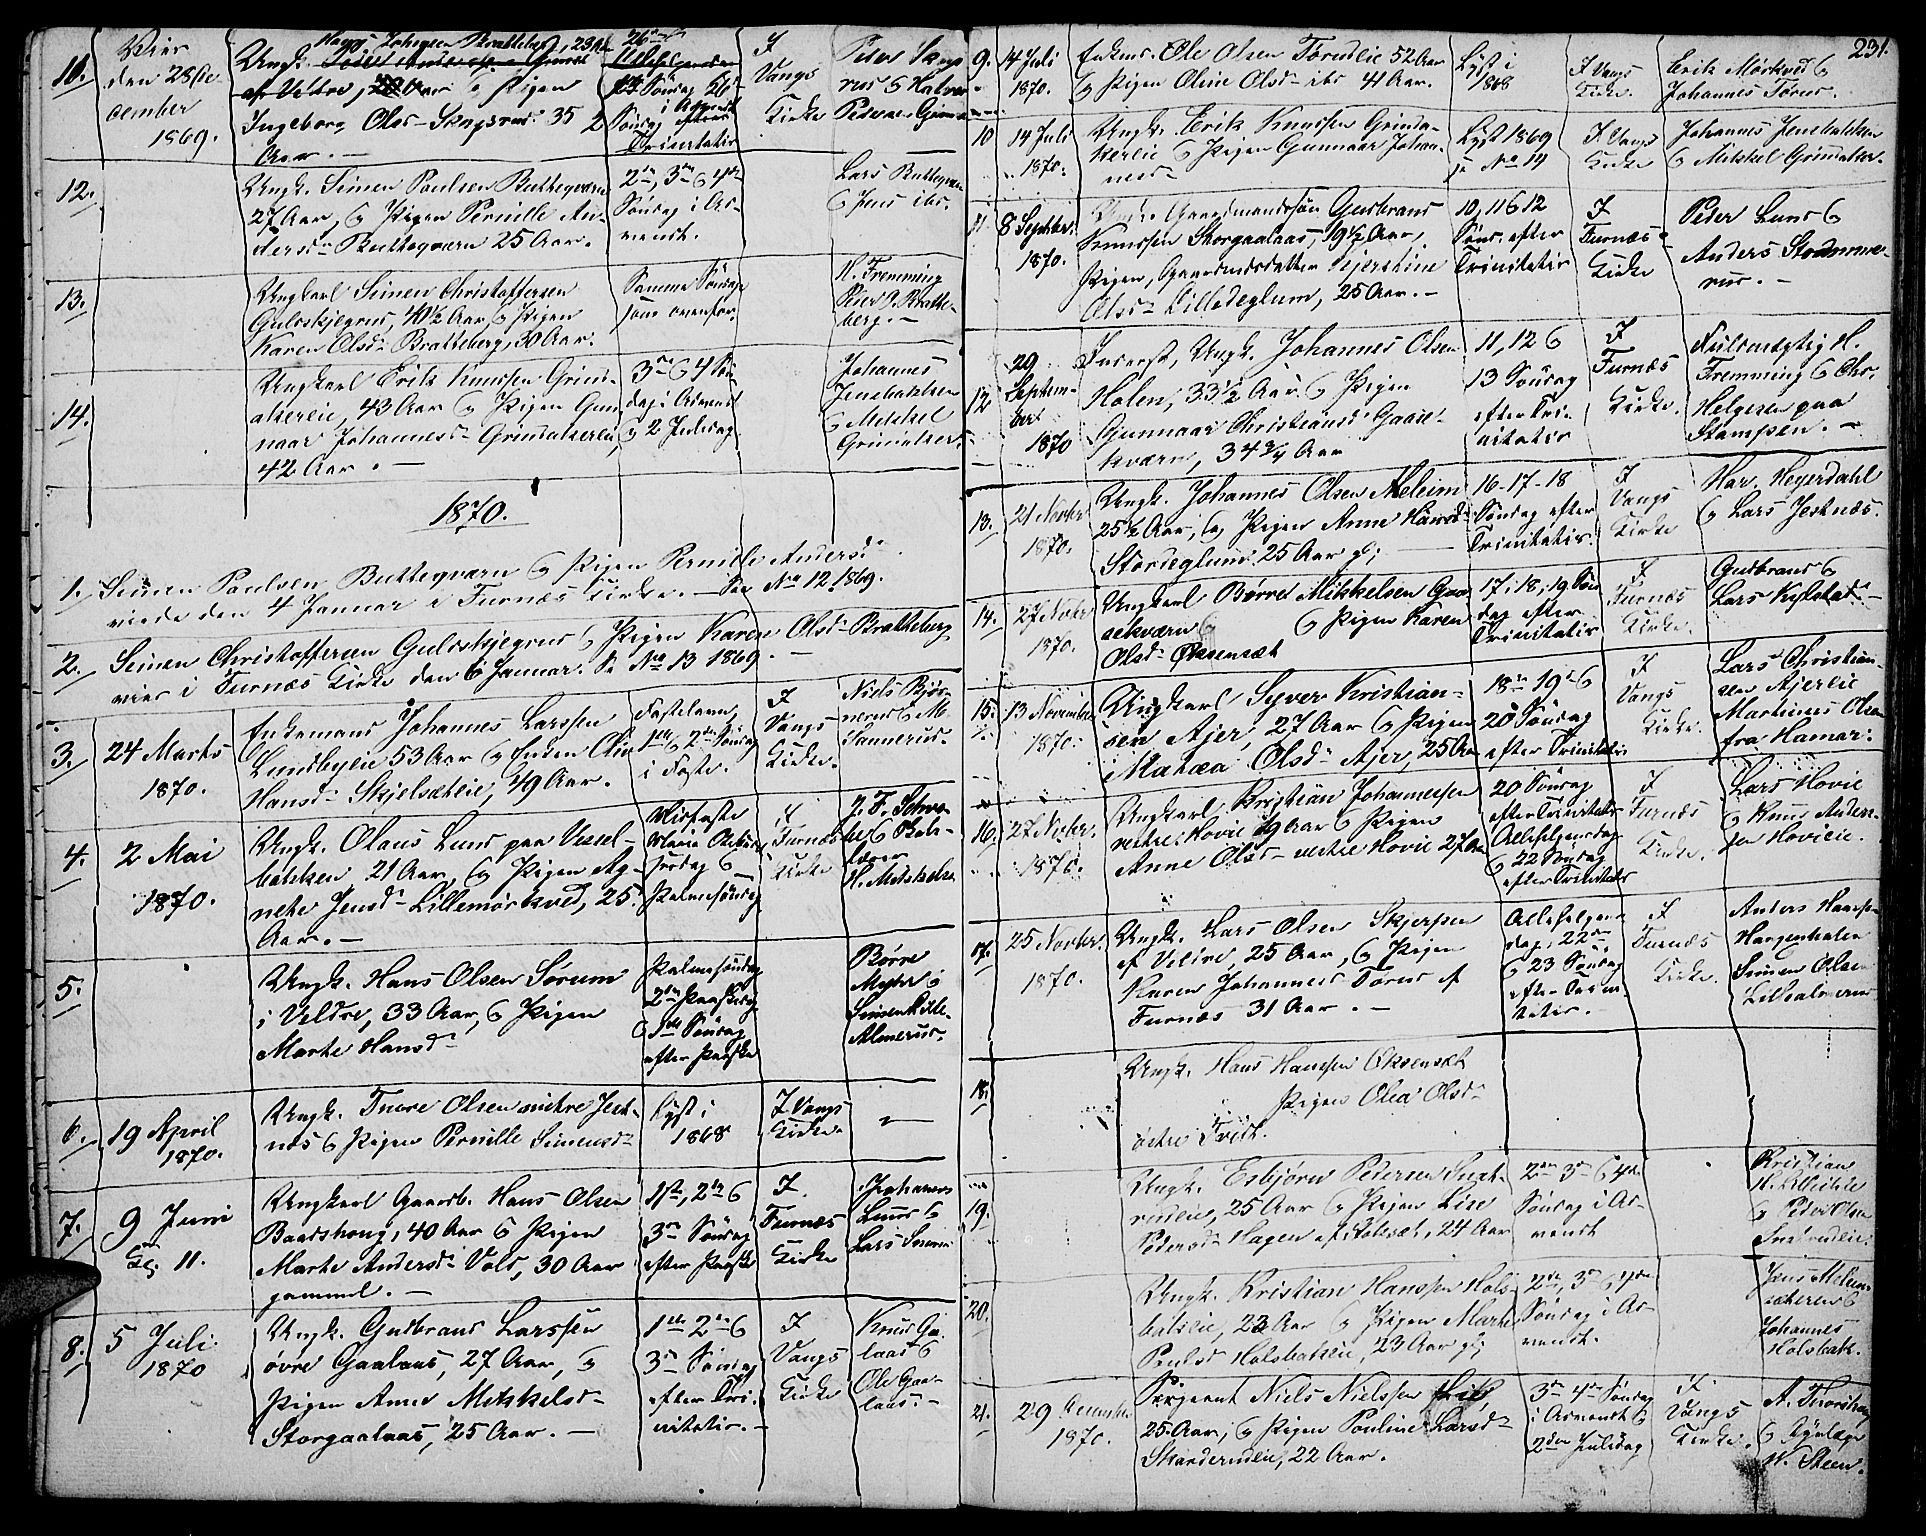 11.
Viede
den 28 De-
cember
1869.
Ungk.
af Veldre, Aar & Pigen
Ingeborg Olsd. 35
Aar. —
26de
Søndag
Søndag efter
Trinitatis
I
Vangs
Kirke
Peder
12.
Ungk. Simen Poulsen Butteqvern
27 Aar, & Pigen Pernille An-
dersdr. Butteqvern 25 Aar.
2den, 3die & 4de
Søndag i Ad-
vendt.
Lars Butteqvern
& Jens ibd.
13.
Ungkarl Simen Christoffersen
Guldskjegrud, 41½ Aar & Pigen
Karen Olsdr. Bratteberg, 30 Aar.
Samme Søndage
som ovenfor.
H. Fremming
Peder O. Bratte-
berg. —
14.
Ungkarl Erik Knudsen Grind-
akerlie, 43 Aar & Pigen Gun-
naar Johannesdr. Grindakerlie,
42 Aar. —
3die & 4 Søn-
dag i Advendt
& 2 Juledag.
Johannes
Jensbakken
& Mikkel
Grindaker.
1870.
1. Simen Poulsen Butteqvern & Pigen Pernille Andersdr.
viede den 4 Januar i Furnæs Kirke. — See No 12, 1869.
2. Simen Christoffersen Guldskjegrud & Pigen Karen Olsdr. Bratteberg
viet i Furnæs Kirke den 6 Januar. Se No 13 1869. —
3.
24 Marts
1870.
Enkemand Johannes Larssen
Lundbylie 53 Aar & Enken Olia
Hansdr. Skjelsætlie, 49 Aar.
Fastelavn,
1ste & 2den Søndag
i Faste.
I
Vangs
Kirke.
Niels Bjør-
nerud & M.
Sannerud.
4.
2 Mai
1870.
Ungk. Olaus Lund paa Vessel-
bakken 21 Aar, & Pigen Ag-
nete Jensdr. Lillemørkved, 25
Aar. —
Midfaste
Maria
& Palmesøndag
I
Furnæs
Kirke
5.
Ungk. Hans Olsen Sørum
i Veldre, 33 Aar, & Pigen
Marte Hansdr.
Palmesøndag
2den Paaskedag
& 1ste Søndag
efter Paaske
Børre
Simen Lille-
Almerud.
6.
19 April
1870.
Ungk. Tore Olsen nedre Jest-
næs & Pigen Pernille Simensdr.
Lyst i
1868
I Vangs
Kirke.
7.
9 Juni
Kl. 11.
Ungkarl Gaardb. Hans Olsen
Baadshoug, 40 Aar & Pigen
Marte Andersdr. Vold, 30 Aar
gammel. —
1ste, 2den &
3die Søndag
efter Paaske
I
Furnæs
Kirke
Johannes
Lund &
Lars
8.
5 Juli
1870
Ungk. Gudbrand Larssen
øvre Gaalaas, 27 Aar, &
Pigen Anne Mikkelsdr.
Storgaalaas, 25 Aar. —
1ste 2den &
3die Søndag
efter Tri-
nitatis. —
I
Vangs
Kirke
Knud Ga-
laas &
Ole Gaa-
laas. —
231.
9.
14 Juli
1870.
Enkem. Ole Olsen Torudlie 52 Aar
& Pigen Oline Olsdr. ibd. 41 Aar.
Lyst i
1868
I Vangs
Kirke.
Erik Mørkved &
Johannes Torud.
10
14 Juli
1870.
Ungk. Erik Knudsen Grinda-
kerlie & Pigen Gunnaar Johan-
nesdr.
Lyst 1869
se No 14
I Vangs
Kirke
Johannes Jensbakken
& Mikkel Grindaker.
11
8 Septbr.
1870.
Ungk. Gaardmandssøn Gudbrand
Knudsen Storgaalaas, 19½ Aar,
Pigen, Gaardmdsdatter Kjerstine
Olsdr. Lilledeglum, 25 Aar. —
10, 11 & 12
Sønd. efter
Trinitatis
I
Furnæs
Kirke
Peder Lund &
Anders Stomme-
rud. —
12
29
Septem-
ber
1870
Inderst, Ungk. Johannes Olsen
Holen, 33½ Aar & Pigen
Gunnaar Christiansdr. Gaase-
kværn, 34¾ Aar
11, 12 &
13 Søndag
efter Tri-
nitatis
I
Furnæs
Kirke.
Fuldmægtig H.
Fremming & Chr.
Helgesen paa
Stampen. —
13.
21 Novbr.
1870.
Ungk. Johannes Olsen Meleim
25½ Aar, & Pigen Anne Hansdr.
Stordeglum 25 Aar gl;
16-17-18
Søndag efter
Trinitatis.
I
Vangs
Kirke
Har. Heyerdahl
& Lars Jestnæs.
14.
27 Novbr
1870.
Ungkarl Børre Mikkelsen Gaa-
sekværn & Pigen Karen
Olsdr. Oksensæt
17, 18, 19 Søn-
dag efter
Trinitatis
I
Furnæs
Kirke.
Gudbrand &
Lars Kylstad —
15.
13 November
1870.
Ungkarl Syver Kristian-
sen Ajer, 27 Aar & Pigen
Matea Olsdr. Ajer, 25 Aar
18de 19de &
20 Søndag
efter Trinitatis
I
Vangs
Kirke.
Lars Christian-
sen Ajerlie
Martinus Olsen
fra Hamar.
16.
27 Novbr.
1870.
Ungkarl Kristian Johannessen
vestre Hovie 29 Aar & Pigen
Anne Olsdr. vestre Hovie 27 Aar
20 Søndag
efter Trinitatis
Allehelgensdag
& 22 Søndag
efter Trinitatis
I
Furnæs
Kirke.
Lars Hovie
& Knud Anders-
sen Hovielie.
17.
25 Novbr.
1870.
Ungk. Lars Olsen Skjerpen
af Veldre, 25 Aar, & Pigen
Karen Johannesd Torud af
Furnæs 31 Aar. —
Allehelgens-
dag, 22de
& 23 Søndag
efter Trini-
tatis. —
I
Furnæs
Kirke.
Anders Hansen
Haugenholen
Simen Olsen
Lillealmerud
18.
Ungk. Hans Hanssen Oksensæt
Pigen Olea Olsdr.
østre Tveit.
19.
Ungk. Esbjørn Pedersen Snat-
rudlie, 25 Aar & Pigen Lise
Pedersdr. Hagen af Stoksæt, 24 Aar
2den 3die & 4de
Søndag i Ad-
vendt
Kristian
& Peder Olsen
Snatrudlie.
20.
Ungk. Kristian Hanssen Hols-
baklie, 22 Aar & Pigen Marte
Poulsdr Holsbaklie, 23 Aar gl;
2den, 3die & 4de
Søndag i Ad-
vendt.
Jens
Johannes
Holsbak.
21.
29 December
1870.
Sergeant Niels Nielssen
25 Aar, & Pigen Pouline Larsdr.
Skanderudlie, 22 Aar.
3die 4de Søndag
i Advendt &
2den Juledag
I
Vangs
Kirke.
A.
&
N. Skeen.